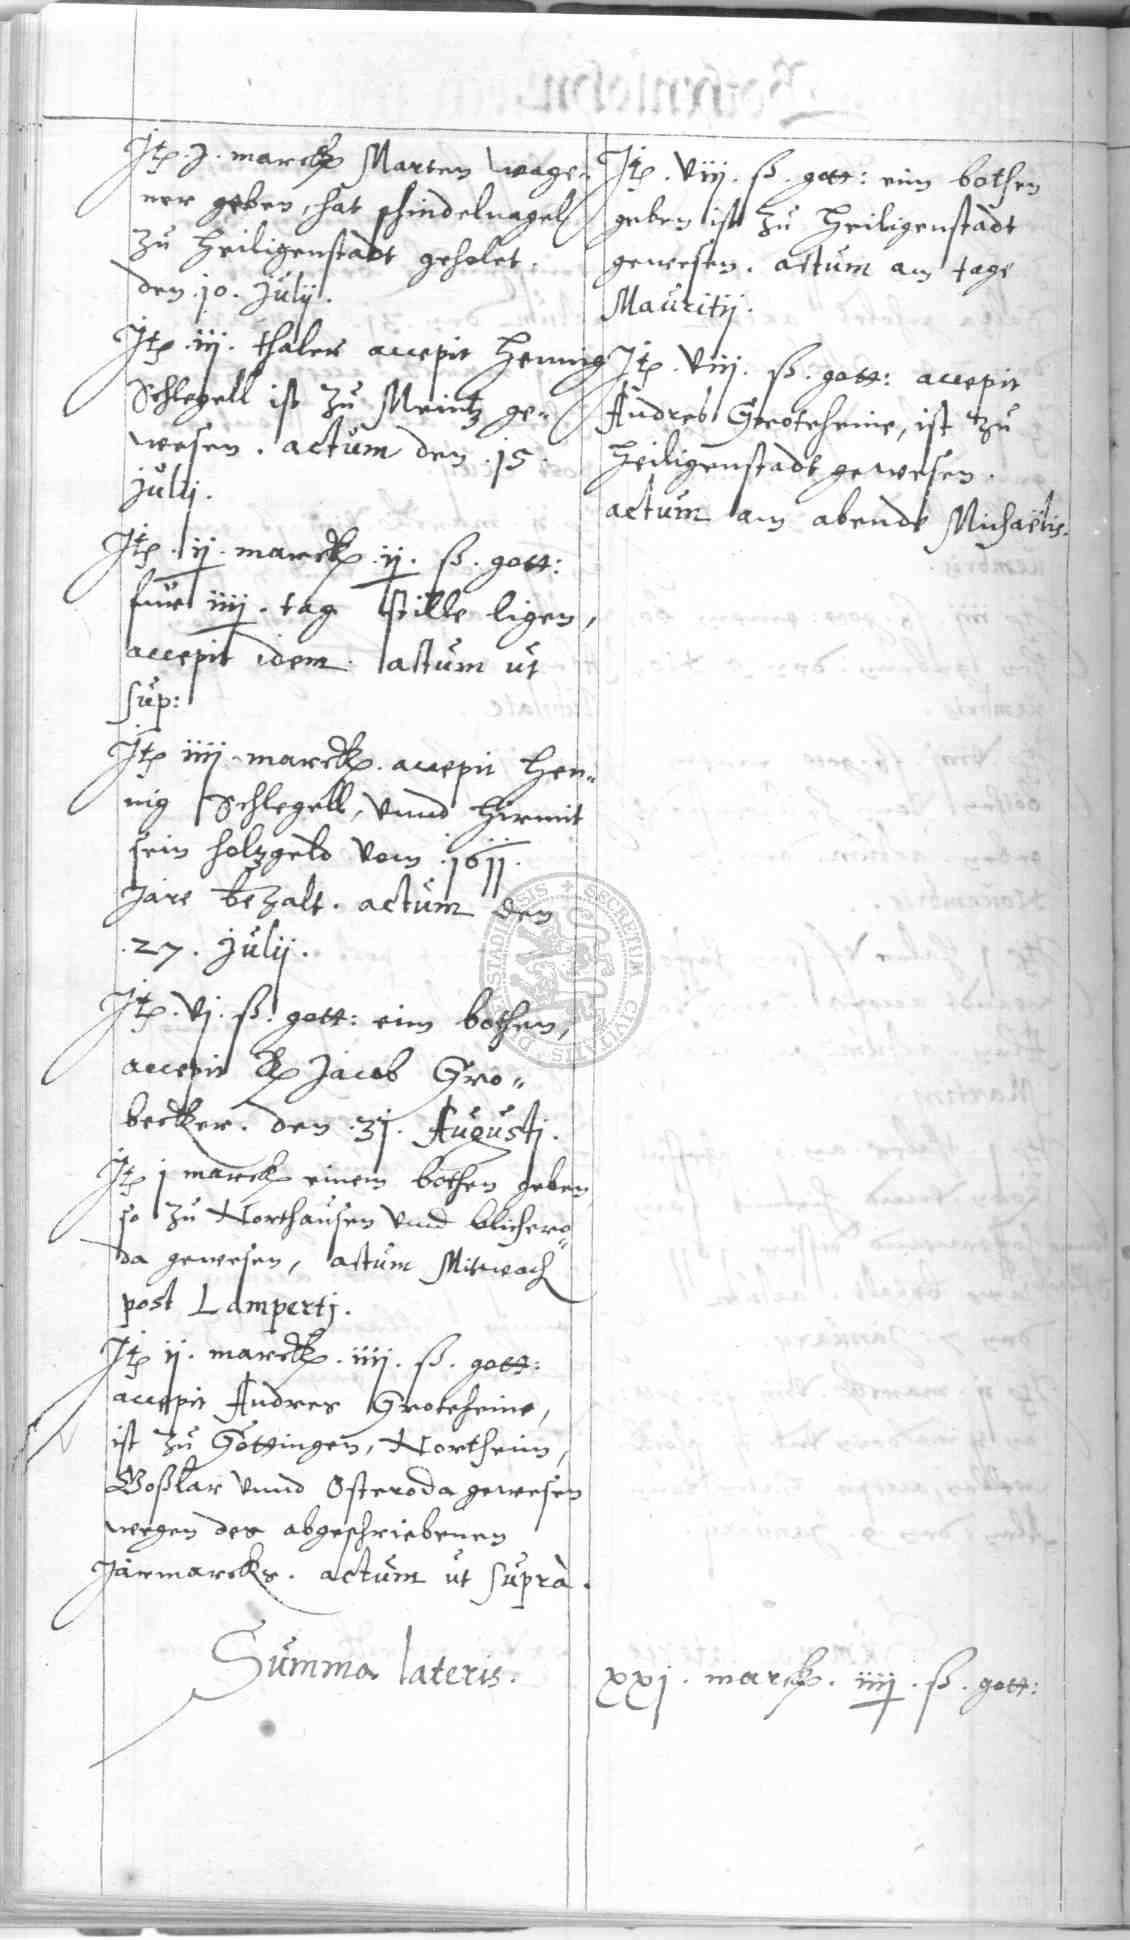 Itp. j. marck Marten Wage-
ner geben, hat schindelnagel
zu Heiligenstadt geholet.
den .10. Julij.
Itp. iij. thaler accepit Hennig
Schlegell ist zu Meintz ge-
wesen. actum den .15.
Julij.
Itp. ij. marck. ij. ß. gott:
fur iiij. tag stille ligen,
accepit idem. actum ut
sup:
Itp iiij. marck. accepit Hen-
nig Schlegell, Vnnd hirmit
sein holtzgeld vom .1611.
Jare bezalt. actum den
.27. Julij.
Itp. vj. ß. gott: eim bothen,
accepit Jacob Gro-
becker. den .31. Augustj.
Itp j marck einem bothen geben
so zu Northausen Vnd blichero-
da gewesen, actum Mitwach
post Lampertj.
Itp ij. marck. iiij. ß. gott:
accepit Andres Groteheine,
ist zu Göttingen, Northeim,
Goßlar Vnnd Osteroda gewesen
wegen des abgeschriebenen
Jarmarcks. actum ut suprà.
Summa lateris.
Itp. viij. ß. gott: eim bothen
geben ist zu Heiligenstadt
gewesen. actum am tage
Mauritij.
Itp. viij. ß. gott: accepit
Andres Groteheine, ist zu
Heiligenstadt gewesen.
actum am abende Michaëlis.
xxj. marck. iiij. ß. gott:
SECRETUM CIVITATIS